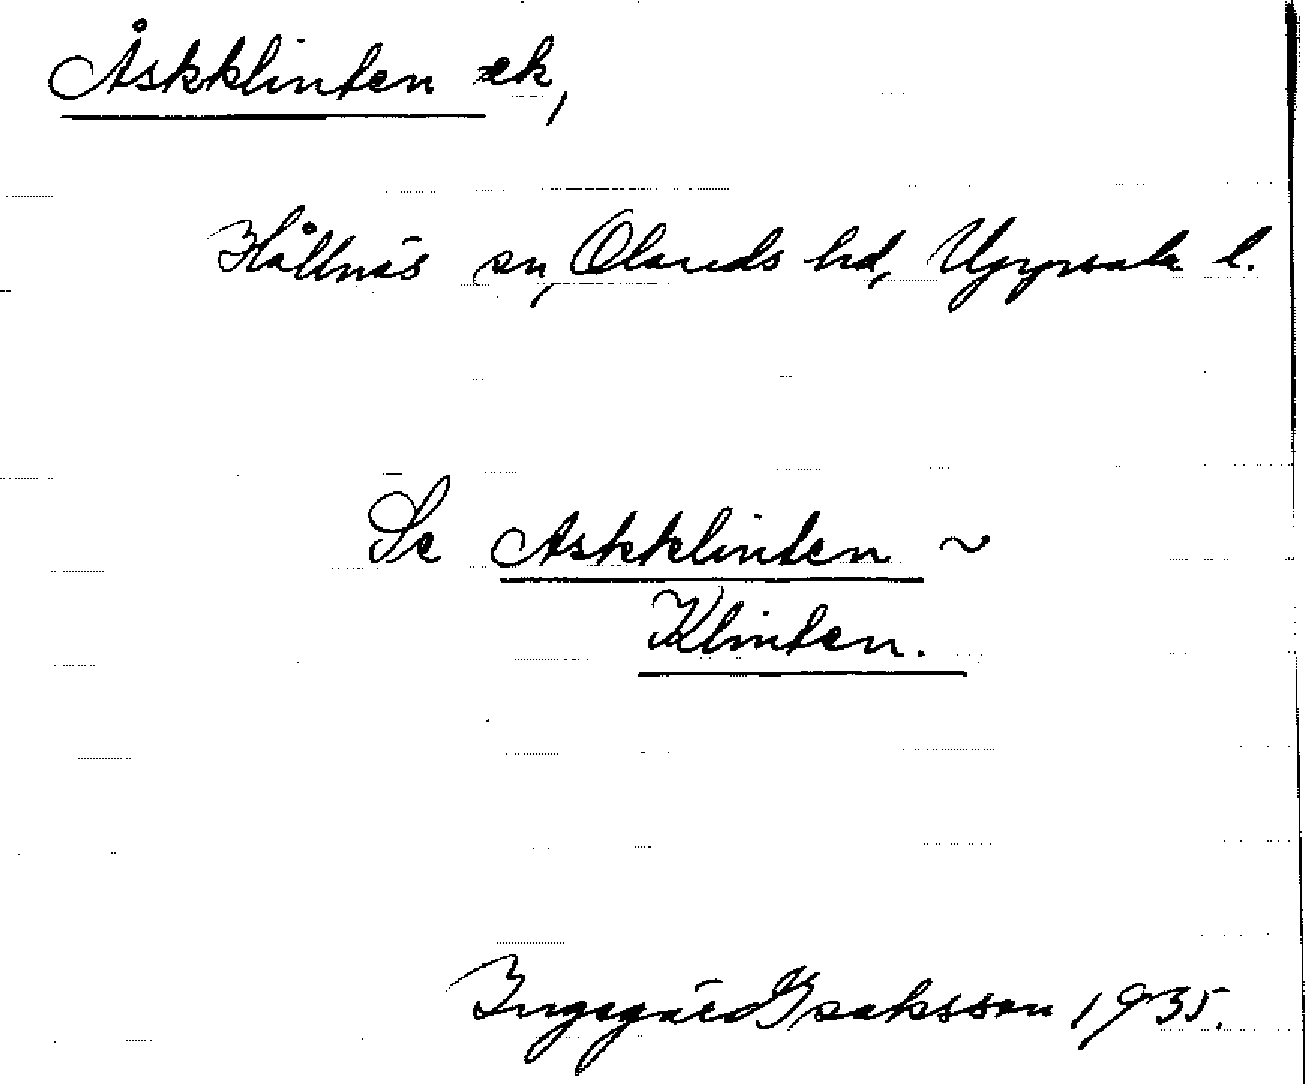 Åskklinten ek,
Hållnäs sn, Olands hd, Uppsala l.
Se Askklinten ~
Klinten.
Ingegärd Isaksson 1935.